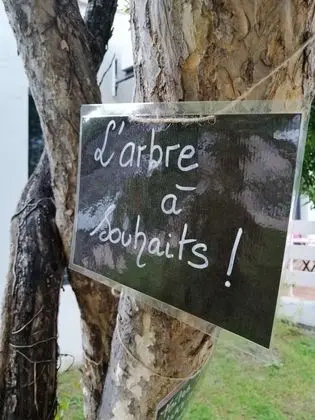 L'arbre
à
souhaits !